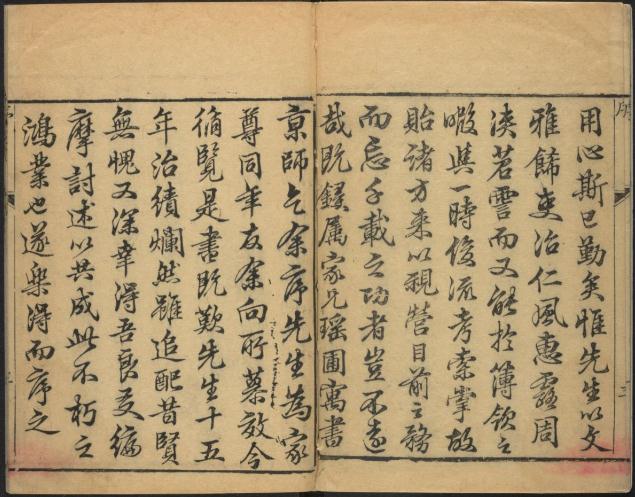 用心斯已勤矣惟先生以文
雅飾吏治仁風惠露周
浹苕霅而又能於簿領之
暇與一時俊流考索掌故
貽諸方来以視營目前之務
而忘千載之功者豈不遠
哉既鋟属家兄瑶圃寓書
京師乞余序先生為家
尊同年友余向所慕效今
循覽是書既歎先生十五
年治績爛然雖追配昔賢
無愧又深幸得吾良友編
摩討述以共成此不朽之
鴻業也遂樂得而序之